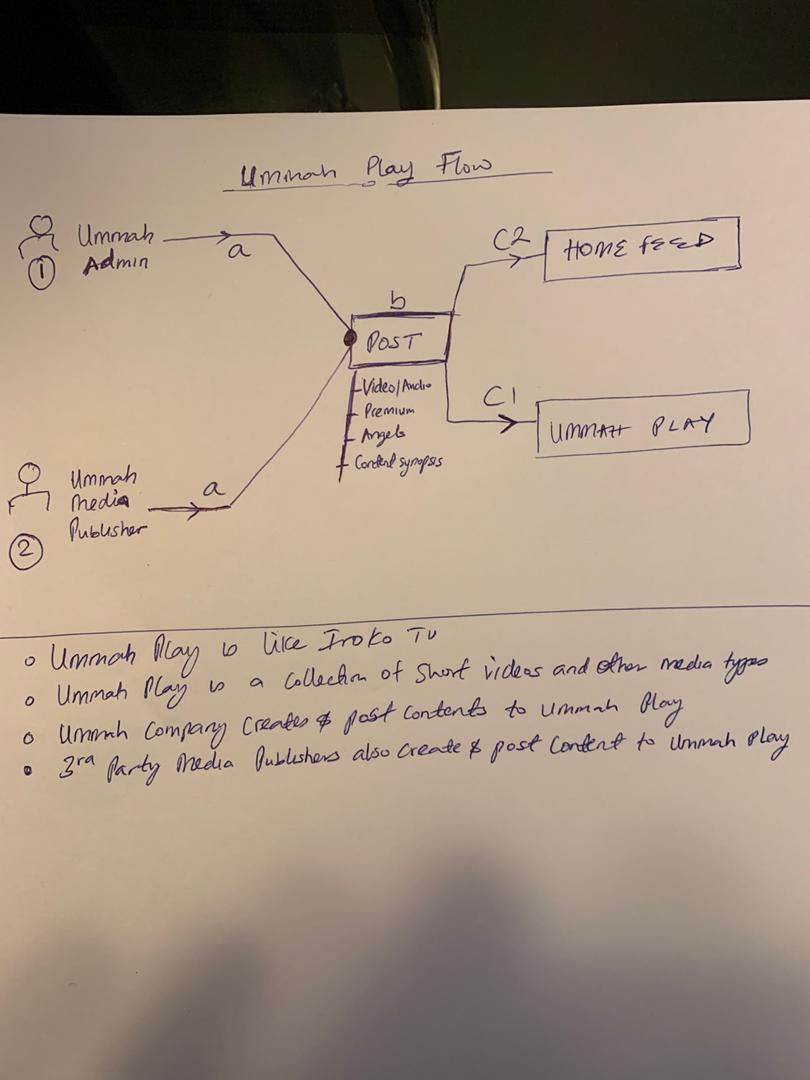 Ummah Play Flow
Ummah
Admin
1
a
b
POST
Video/Audio
Premium
Angels
Content synopsis
C2
HOME FEED
C1
UMMAH PLAY
Ummah
Media
Publisher
2
a
Ummah Play is like Iroko TV
Ummah Play is a collection of short videos and other media types
Ummah Company Creates & post contents to Ummah Play
3rd Party Media Publishers also create & post content to Ummah Play